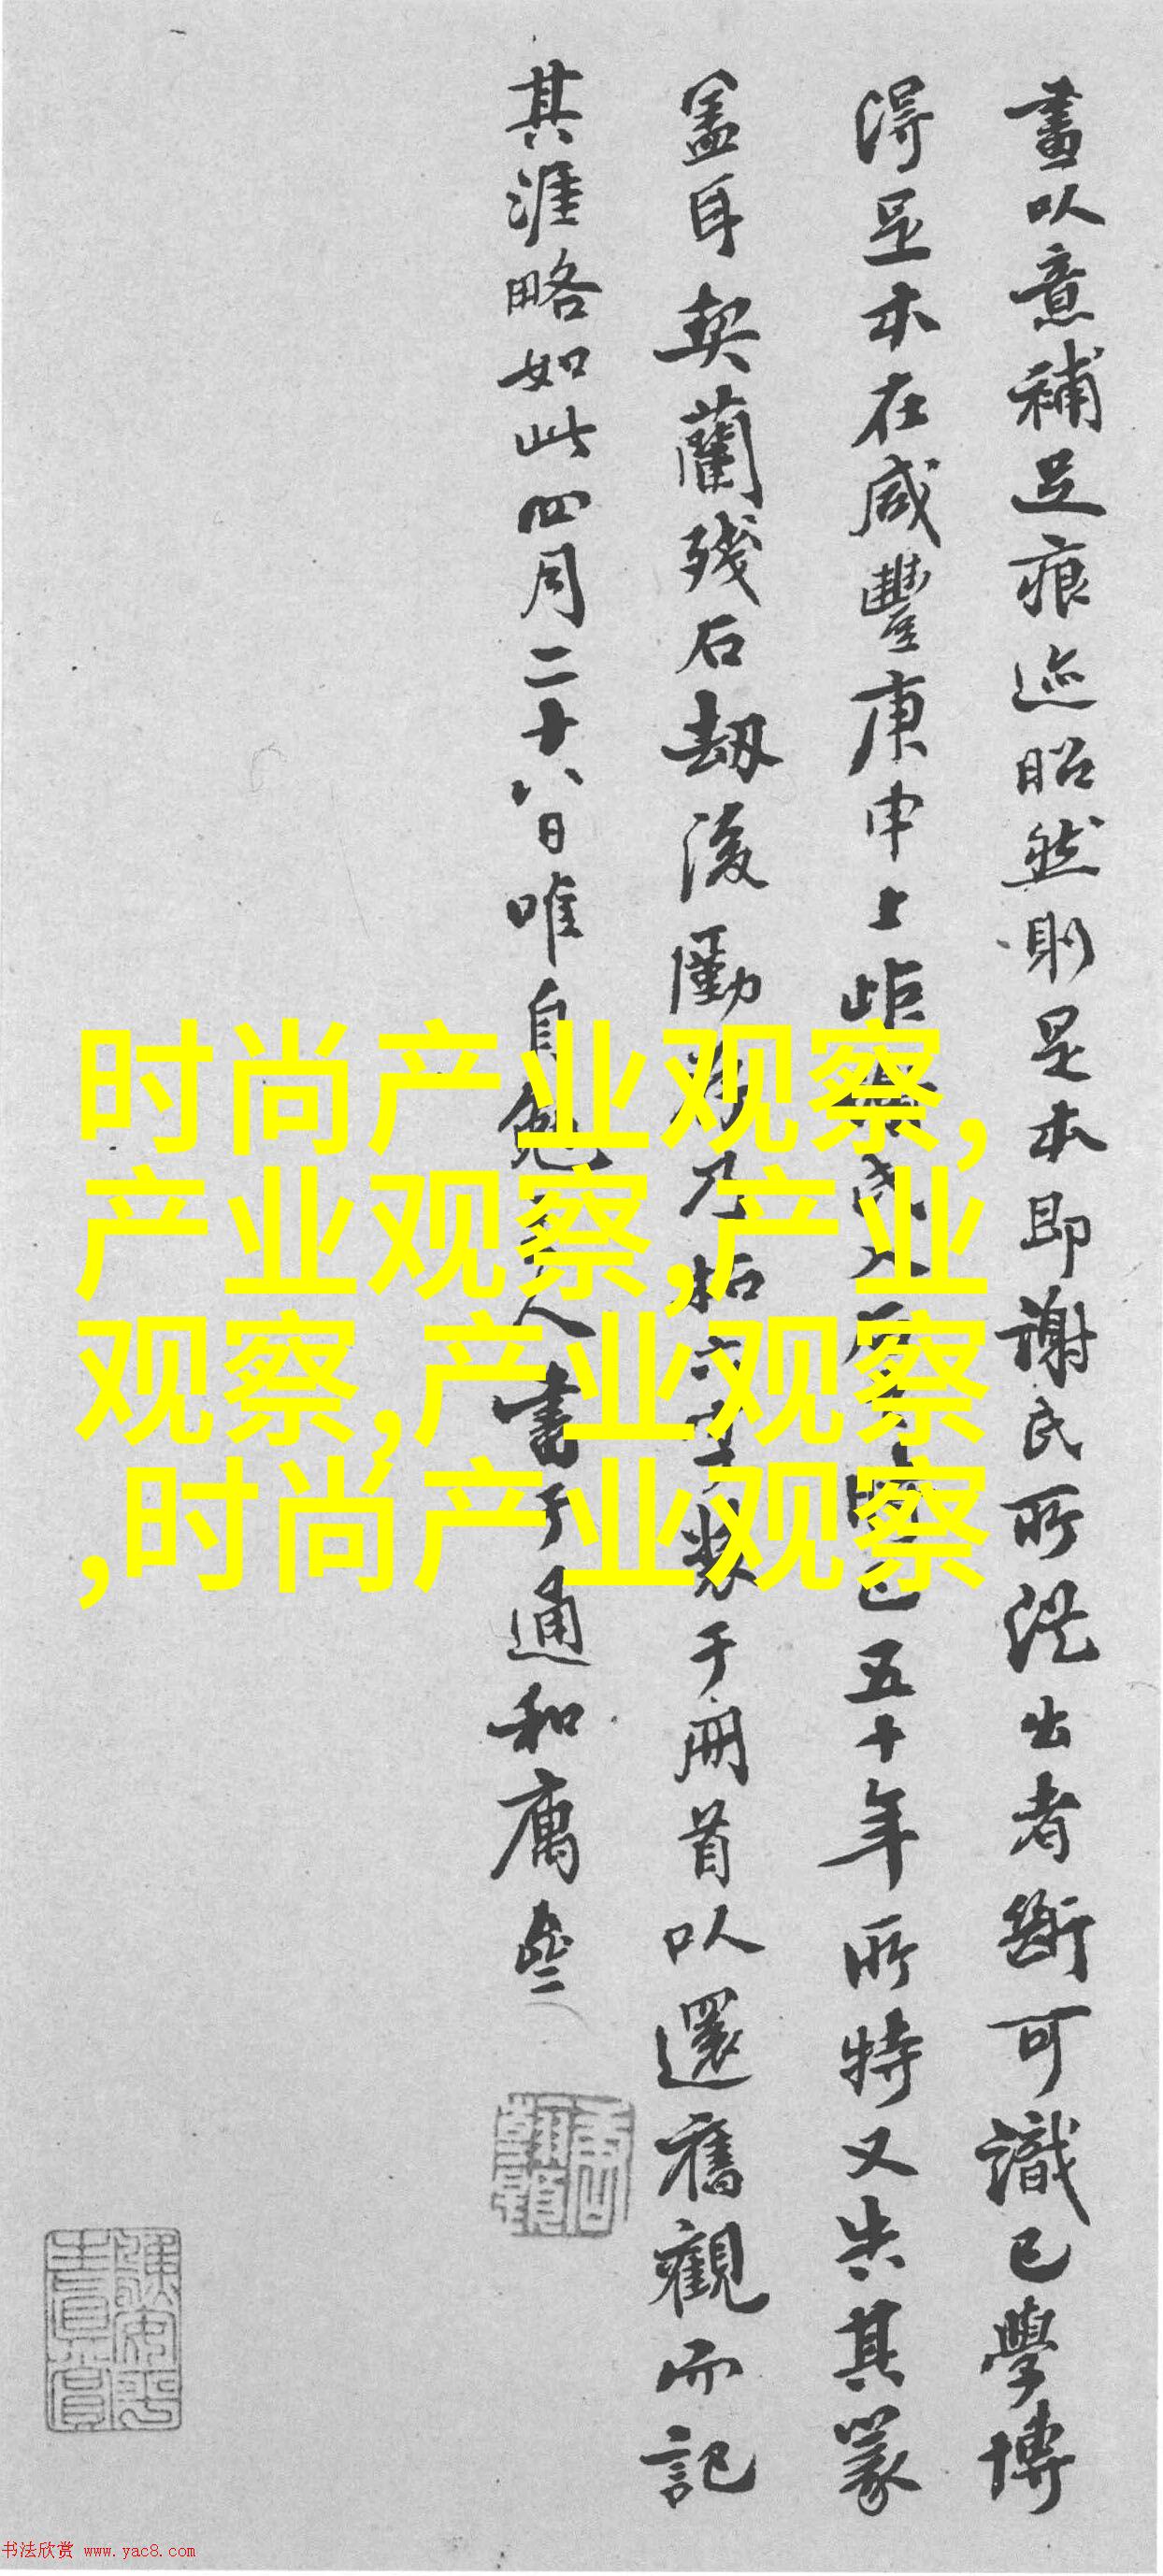 畫以意補足痕迹昭然則是本即謝氏所從出者斷可識已學博
得足本在咸豐庚申上距 五十年所特又失其篆
蓋耳契蘭殘石劫後勵 乃 于冊首以還舊觀而記
其涯略如此四月二十八日唯自勉 人書于通和

时尚产业观察,
产业观察,产业
观察,产业观察
,时尚产业观察

书法欣赏 www.yac8.com